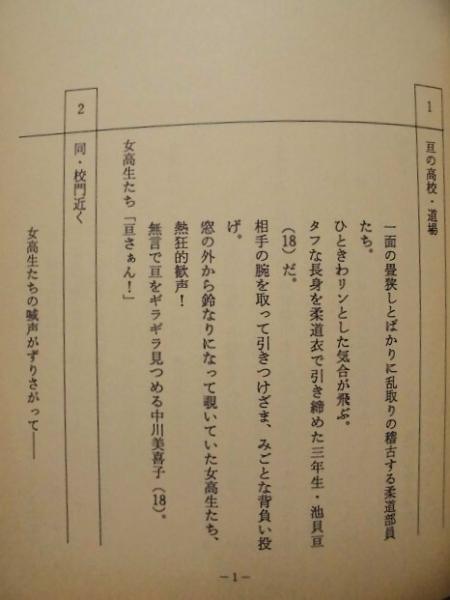 1 亘の高校・道場
一面の畳狭しとばかりに乱取りの稽古する柔道部員
たち。
ひときわリンとした気合が飛ぶ。
タフな長身を柔道衣で引き締めた三年生・池貝亘
(18)だ。
相手の腕を取って引きつけざま、みごとな背負い投
げ。
窓の外から鈴なりになって覗いていた女高生たち、
熱狂的歓声!
無言で亘をギラギラ見つめる中川美喜子(18)。
女高生たち「亘さぁん!」
2 同・校門近く
女高生たちの喊声がずりさがって――
－1－